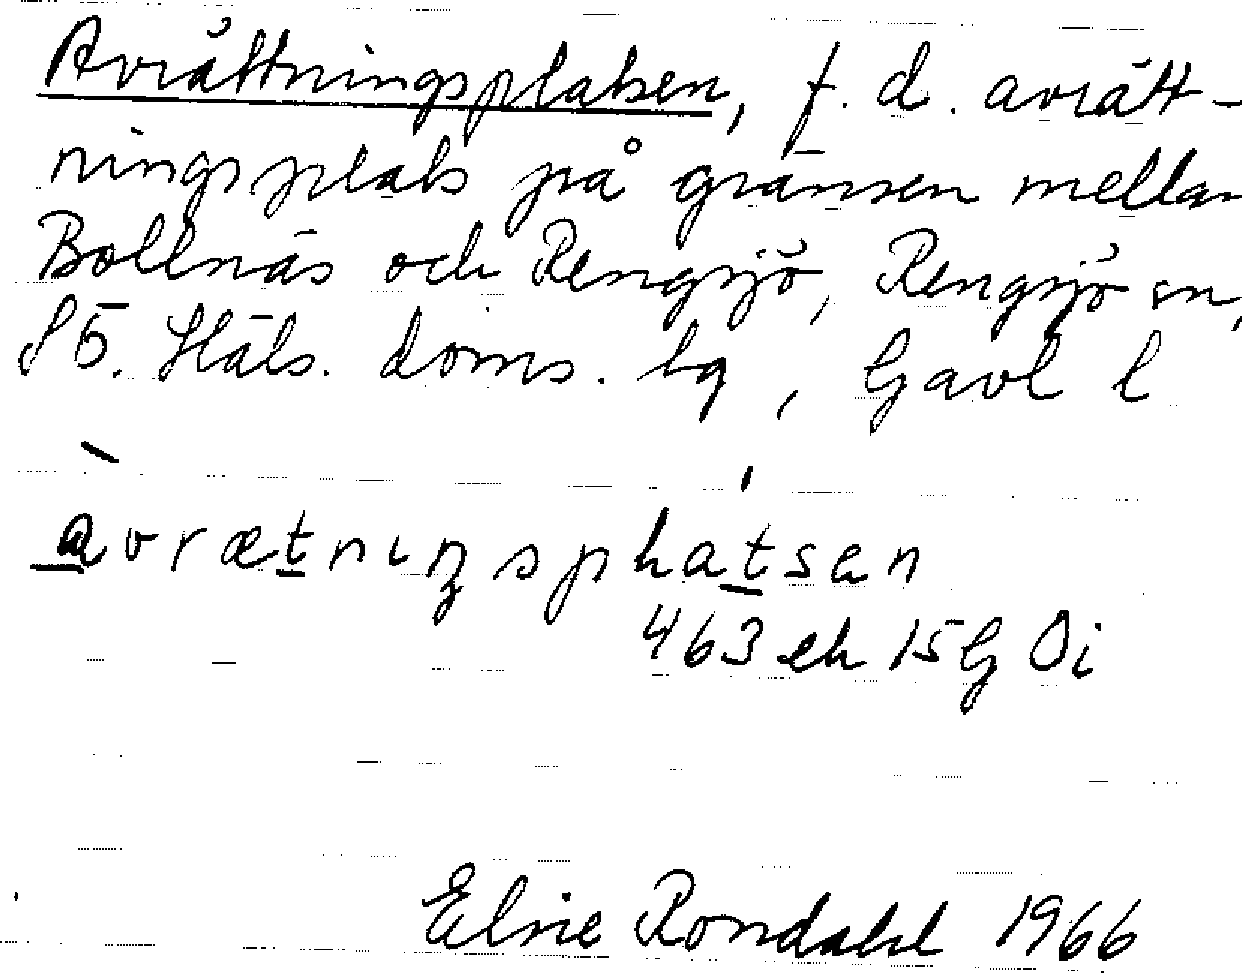 Avrättningsplatsen, f. d. avrätt-
ningsplats på gränsen mellan
Bollnäs och Rengsjö, Rengsjö sn,
S Häls. doms. tg, Gävl l
avrætnıŋsplatsen
463 eh 15G Oi
Elsie Rondahl 1966